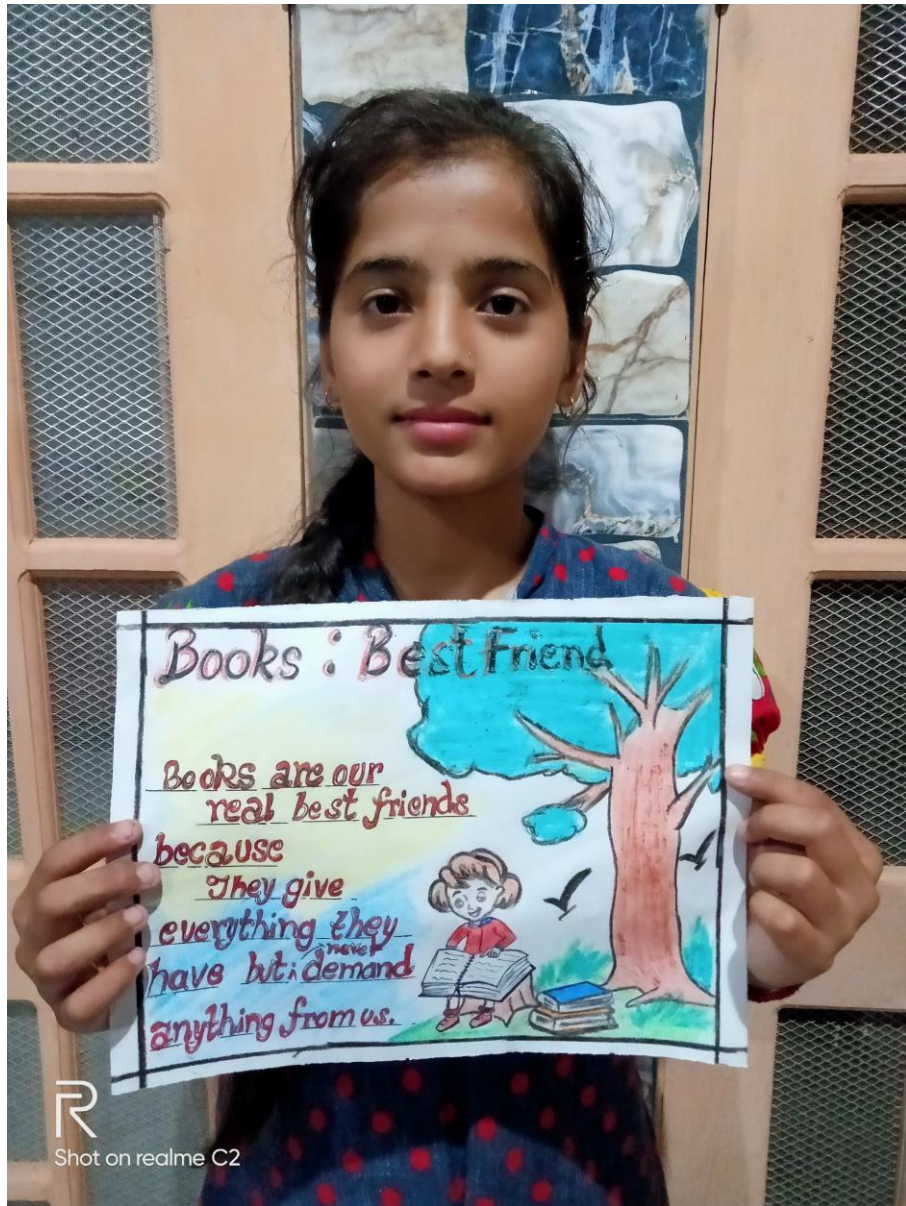 Books : Best Friend
Books are our
real best friends
because
They give
everything they
have but: never demand
anything from us.
R
Shot on realme C2